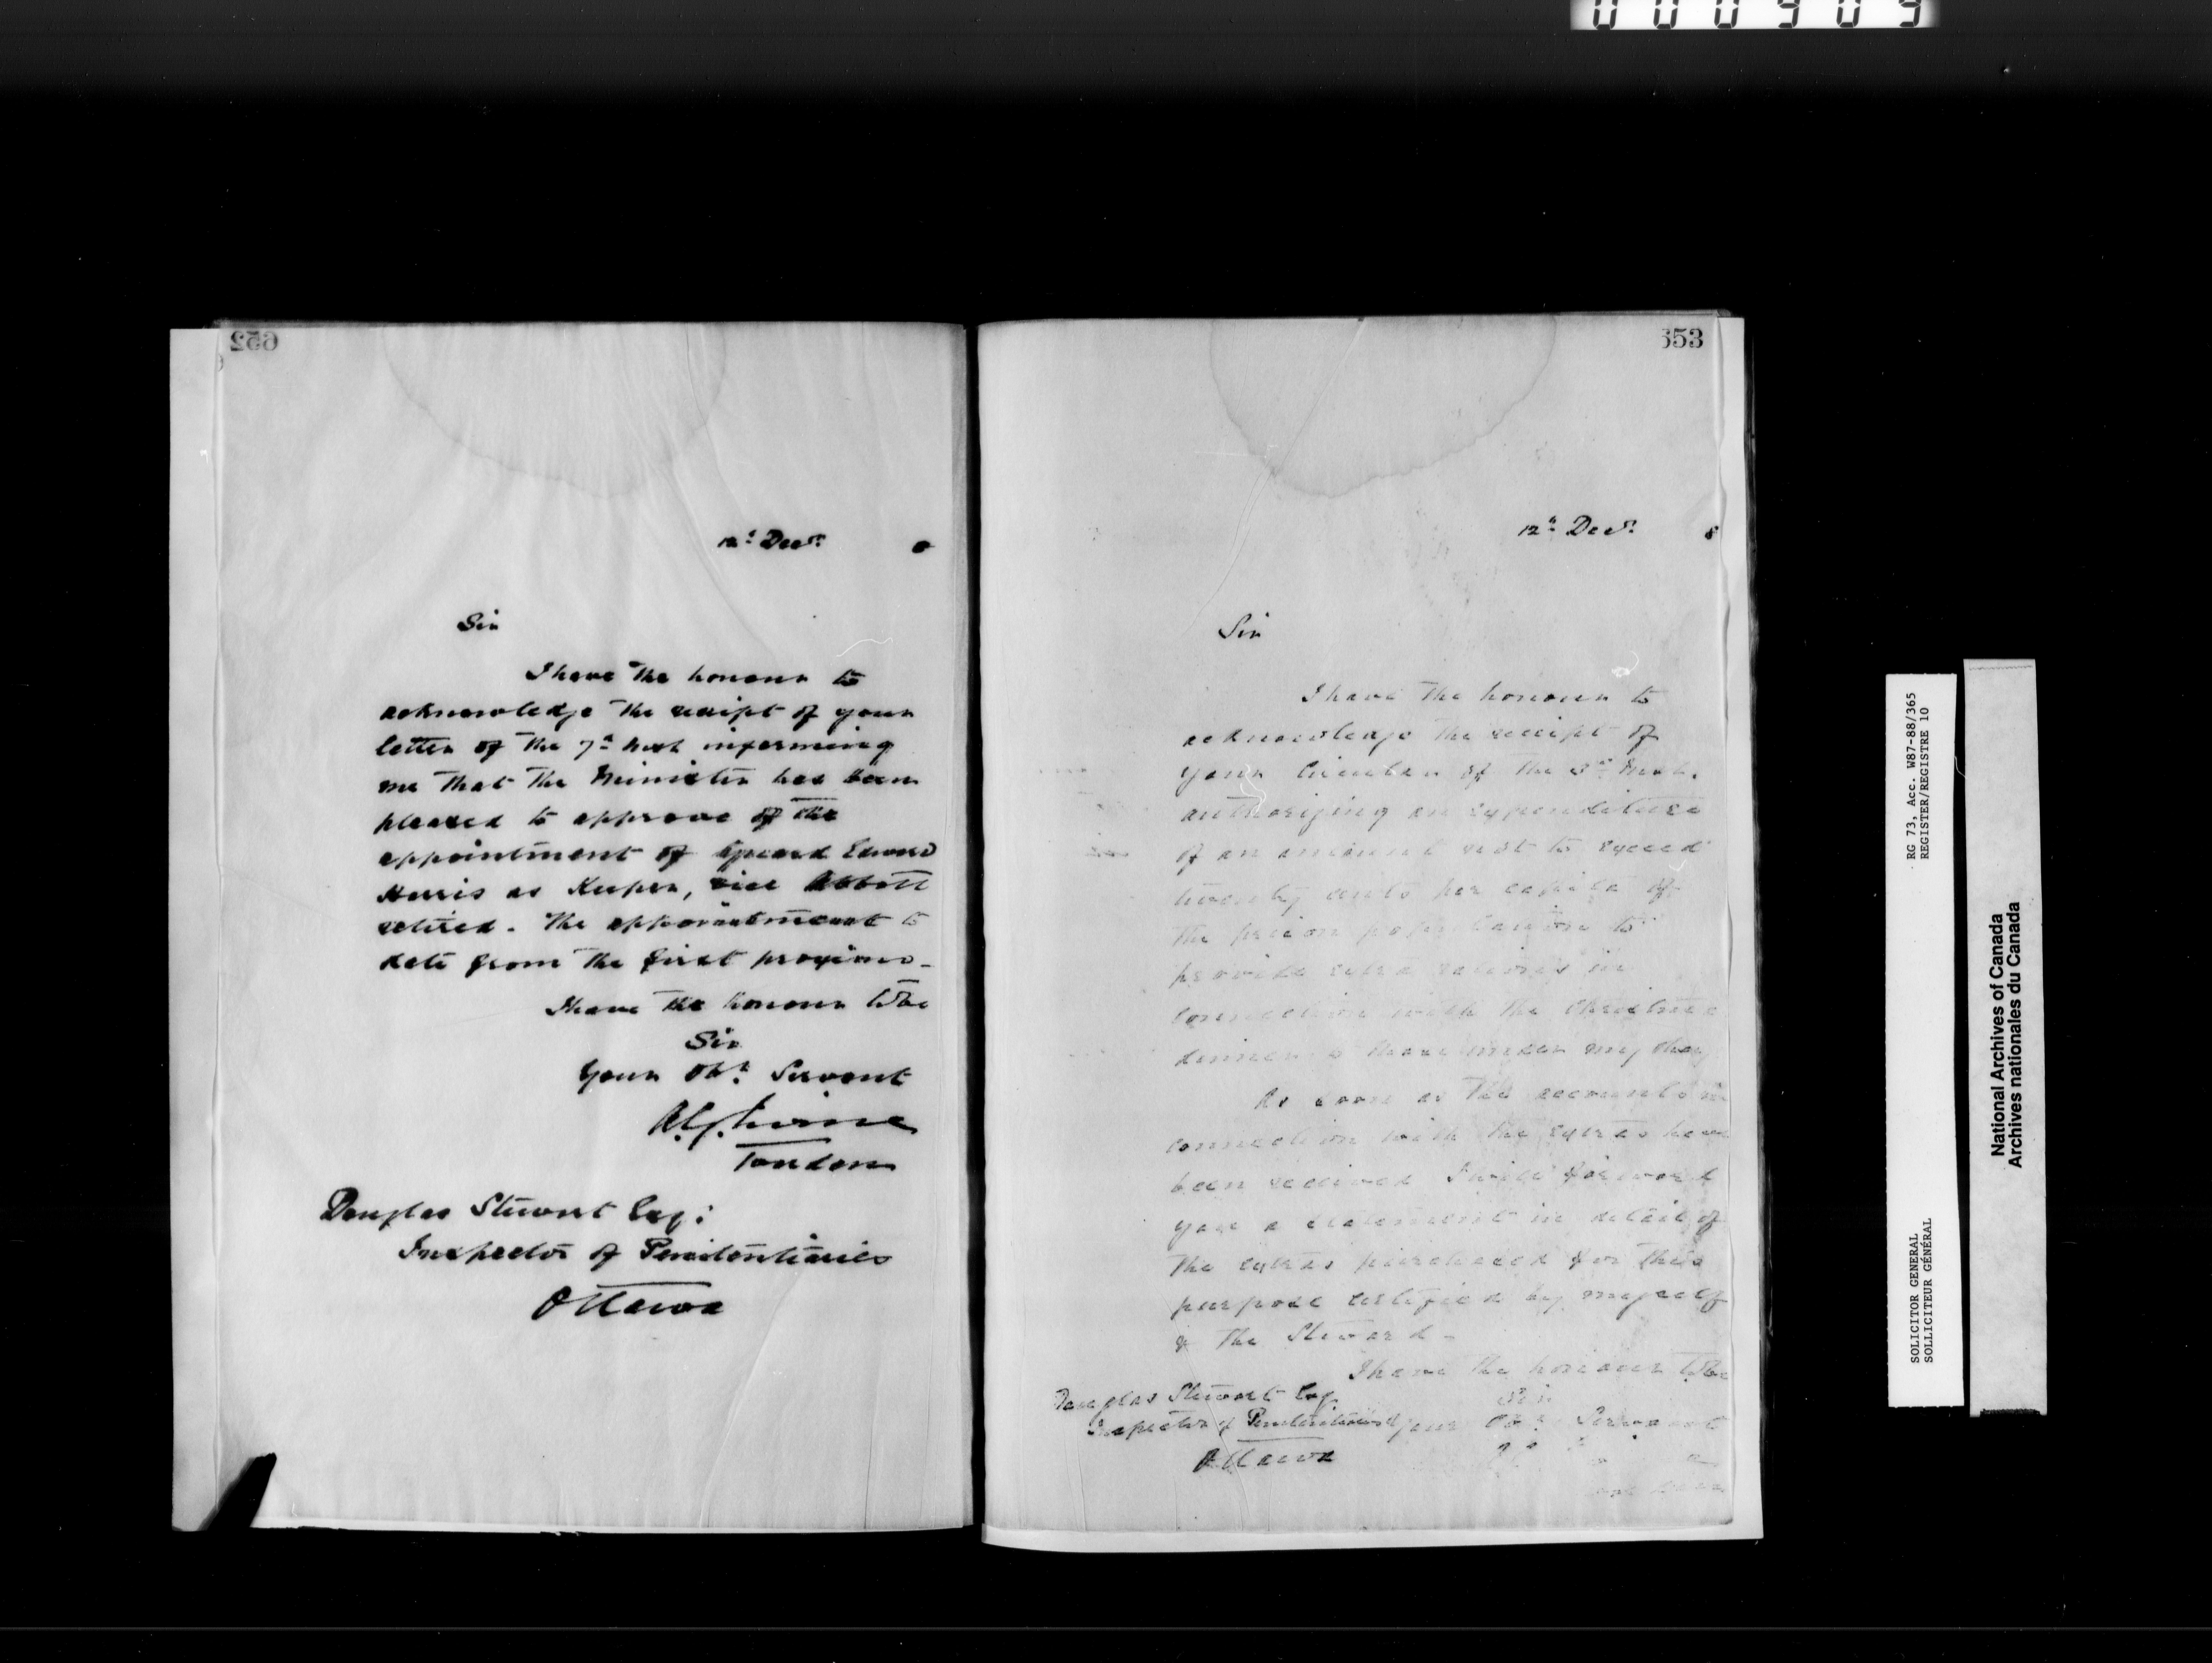 000303
652
12th Decr. 8
Sir
I have the honour to
acknowledge the receipt of your
letter of the 7th Inst informing
me that the Minister has been
pleased to approve of the
appointment of Guard Edward
Harris as Keeper, vice Abbott
retired. The appointment to
date from the first proximo_
I have the honour to be
Sir
Your Obt. Servant
A.G. Irvine
Warden
Douglas Stewart Esq:
Inspector of Penitentiaries
Ottawa
653
12th Decr. 8
Sir
I have the honour to
acknowledge the receipt of
your Circular of the 3rd Inst.
authorizing an expenditure
of an amount not to exceed
twenty cents per capita of
the prison population to
provide extra rations in
connection with the Christmas
dinner to those under my charge
As soon as the accounts in
connection with the extras have
been received I will forward
you a statement in detail of
the extras purchased for this
purpose certified by myself
& the Steward_
I have the honour to be
Sir
Your Obt. Servant
Douglas Stewart Esq
Inspector of Penitentiaries
Ottawa
SOLICITOR GENERAL
SOLLICITEUR GÉNÉRAL
RG 73, Acc. W87-88/365
REGISTER/REGISTRE 10
National Archives of Canada
Archives nationales du Canada